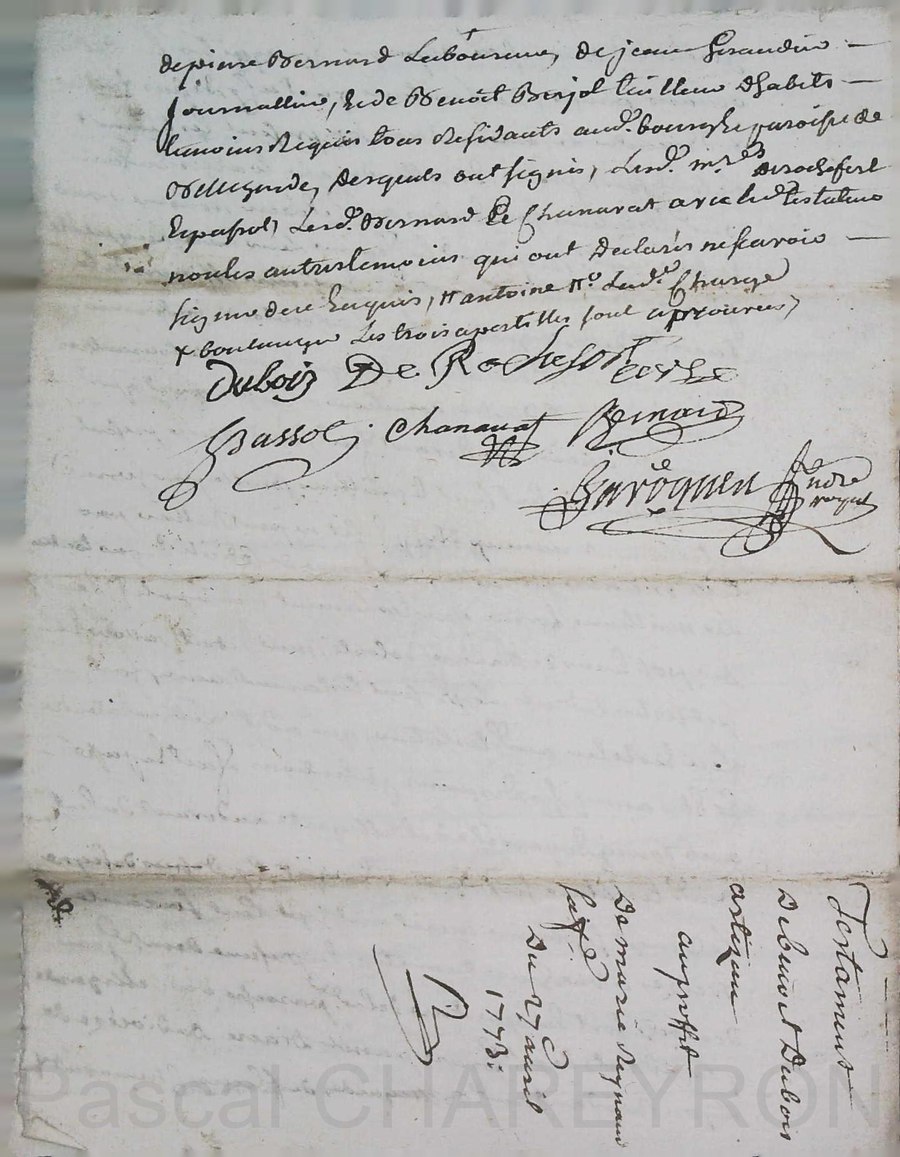 de pierre Bernard Laboureur, de jean Giraudin
journallier, & de Benoît Birjol tailleur d'habits
temoins Requis tous Residants aud. bourg & paroisse de
Bellegarde, desquels ont signés, Lesd. mres De rochefort
Epassol, Lesd. Bernard & Chanavat avec led. testateur
non les autres temoins qui ont declarés ne scavoir
signer de ce Enquis, antoine no. Lad. Charge
+ boulanger Les trois apostilles sont aprouvees,
Dubois De Rochefort
Epassol Chanavat Bernard
notre royal
Testament
De benoist Dubois
artizan
au proffit
De marie Reynaud
Du 27 avril
1773.
Pascal CHAREYRON